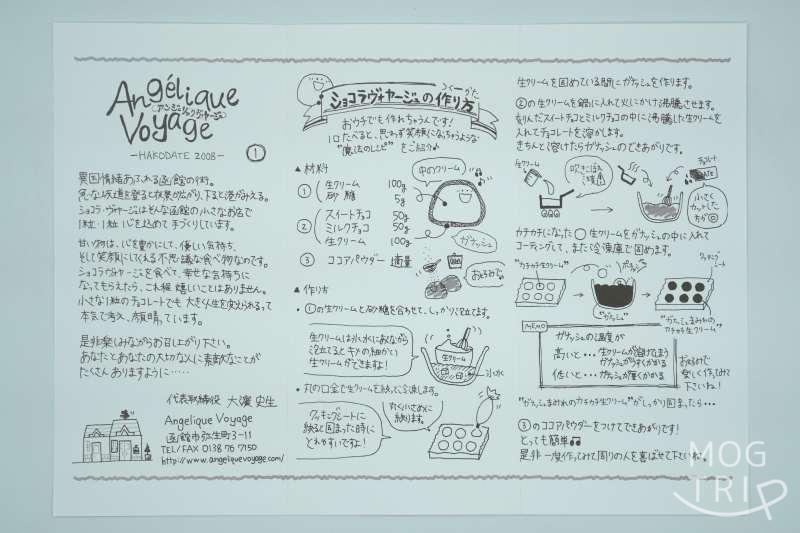 Angélique
アンジェリックヴォヤージュ
Voyage
—HAKODATE 2008—
①
異国情緒あふれる函館の街。
急な坂道を登ると教会が広がり、下ると港がみえる。
ショコラ・ヴォヤージュはそんな函館の小さなお店で
1粒、1粒 心を込めて 手づくりしています。
甘い物は、心を豊かにして、優しい気持ち、
そして笑顔にしてくれる不思議な食べ物なのです。
ショコラヴォヤージュを食べて、幸せな気持ちに
なってもらえたら、これ程 嬉しいことはありません。
小さな1粒のチョコレートでも 大きく人生を変えられるって
本気で考え、頑張っています。
是非楽しみながらお召し上がり下さい。
あなたとあなたの大切な人に素敵なことが
たくさん ありますように……
代表取締役 大濱 史生
Angelique Voyage
函館市弥生町3-11
TEL/FAX 0138 76 7150
http://www.angeliquevoyage.com/
つくーかた
ショコラヴォヤージュの作り方
おウチでも作れちゃうんです!
1口たべると、思わず笑顔になっちゃうような
"魔法のレシピ" をご紹介♪
▲材料
① 生クリーム 100g
砂糖 5g
② スイートチョコ 50g
ミルクチョコ 50g
生クリーム 100g
③ ココアパウダー 適量
中のクリーム
ガナッシュ
お好みで。
▲作り方
・①の生クリームと砂糖を合わせて、しっかり泡立てます。
生クリームは氷水にあてながら
泡立てるとキメの細かい
生クリームができますよ!
生クリーム
氷水
・丸の口金で生クリームを絞って冷凍します。
クッキングシートに
絞ると固まった時に
とれやすいですよ!
丸く小さめに
絞ります。
生クリームを固めている間にガナッシュを作ります。
②の生クリームを鍋に入れて火にかけ沸騰させます。
刻んだスイートチョコとミルクチョコの中に沸騰した生クリームを
入れてチョコレートを溶かします。
きちんと溶けたらガナッシュのできあがりです。
生クリーム
吹きこぼれ
に注意
チョコレート
小さく
カットした
方が◎
カチカチになった○生クリームをガナッシュの中に入れて
コーティングして、また冷凍庫で固めます。
"カチカチ生クリーム"
ポチャッ
"ガナッシュ"
クッキング
シート
"ガナッシュまみれの
カチカチ生クリーム"
MEMO
ガナッシュの温度が
高いと・・・生クリームが溶けてしまう
ガナッシュがうすくかかる
低いと・・・ガナッシュが厚くかかる
お好みで
楽しく作ってみて
下さいね!
"ガナッシュまみれのカチカチ生クリーム"がしっかり固まったら・・・
③のココアパウダーをつけてできあがりです!
とっても簡単♫
是非 一度作ってみて周りの人を喜ばせて下さいね。
MOG
TRIP